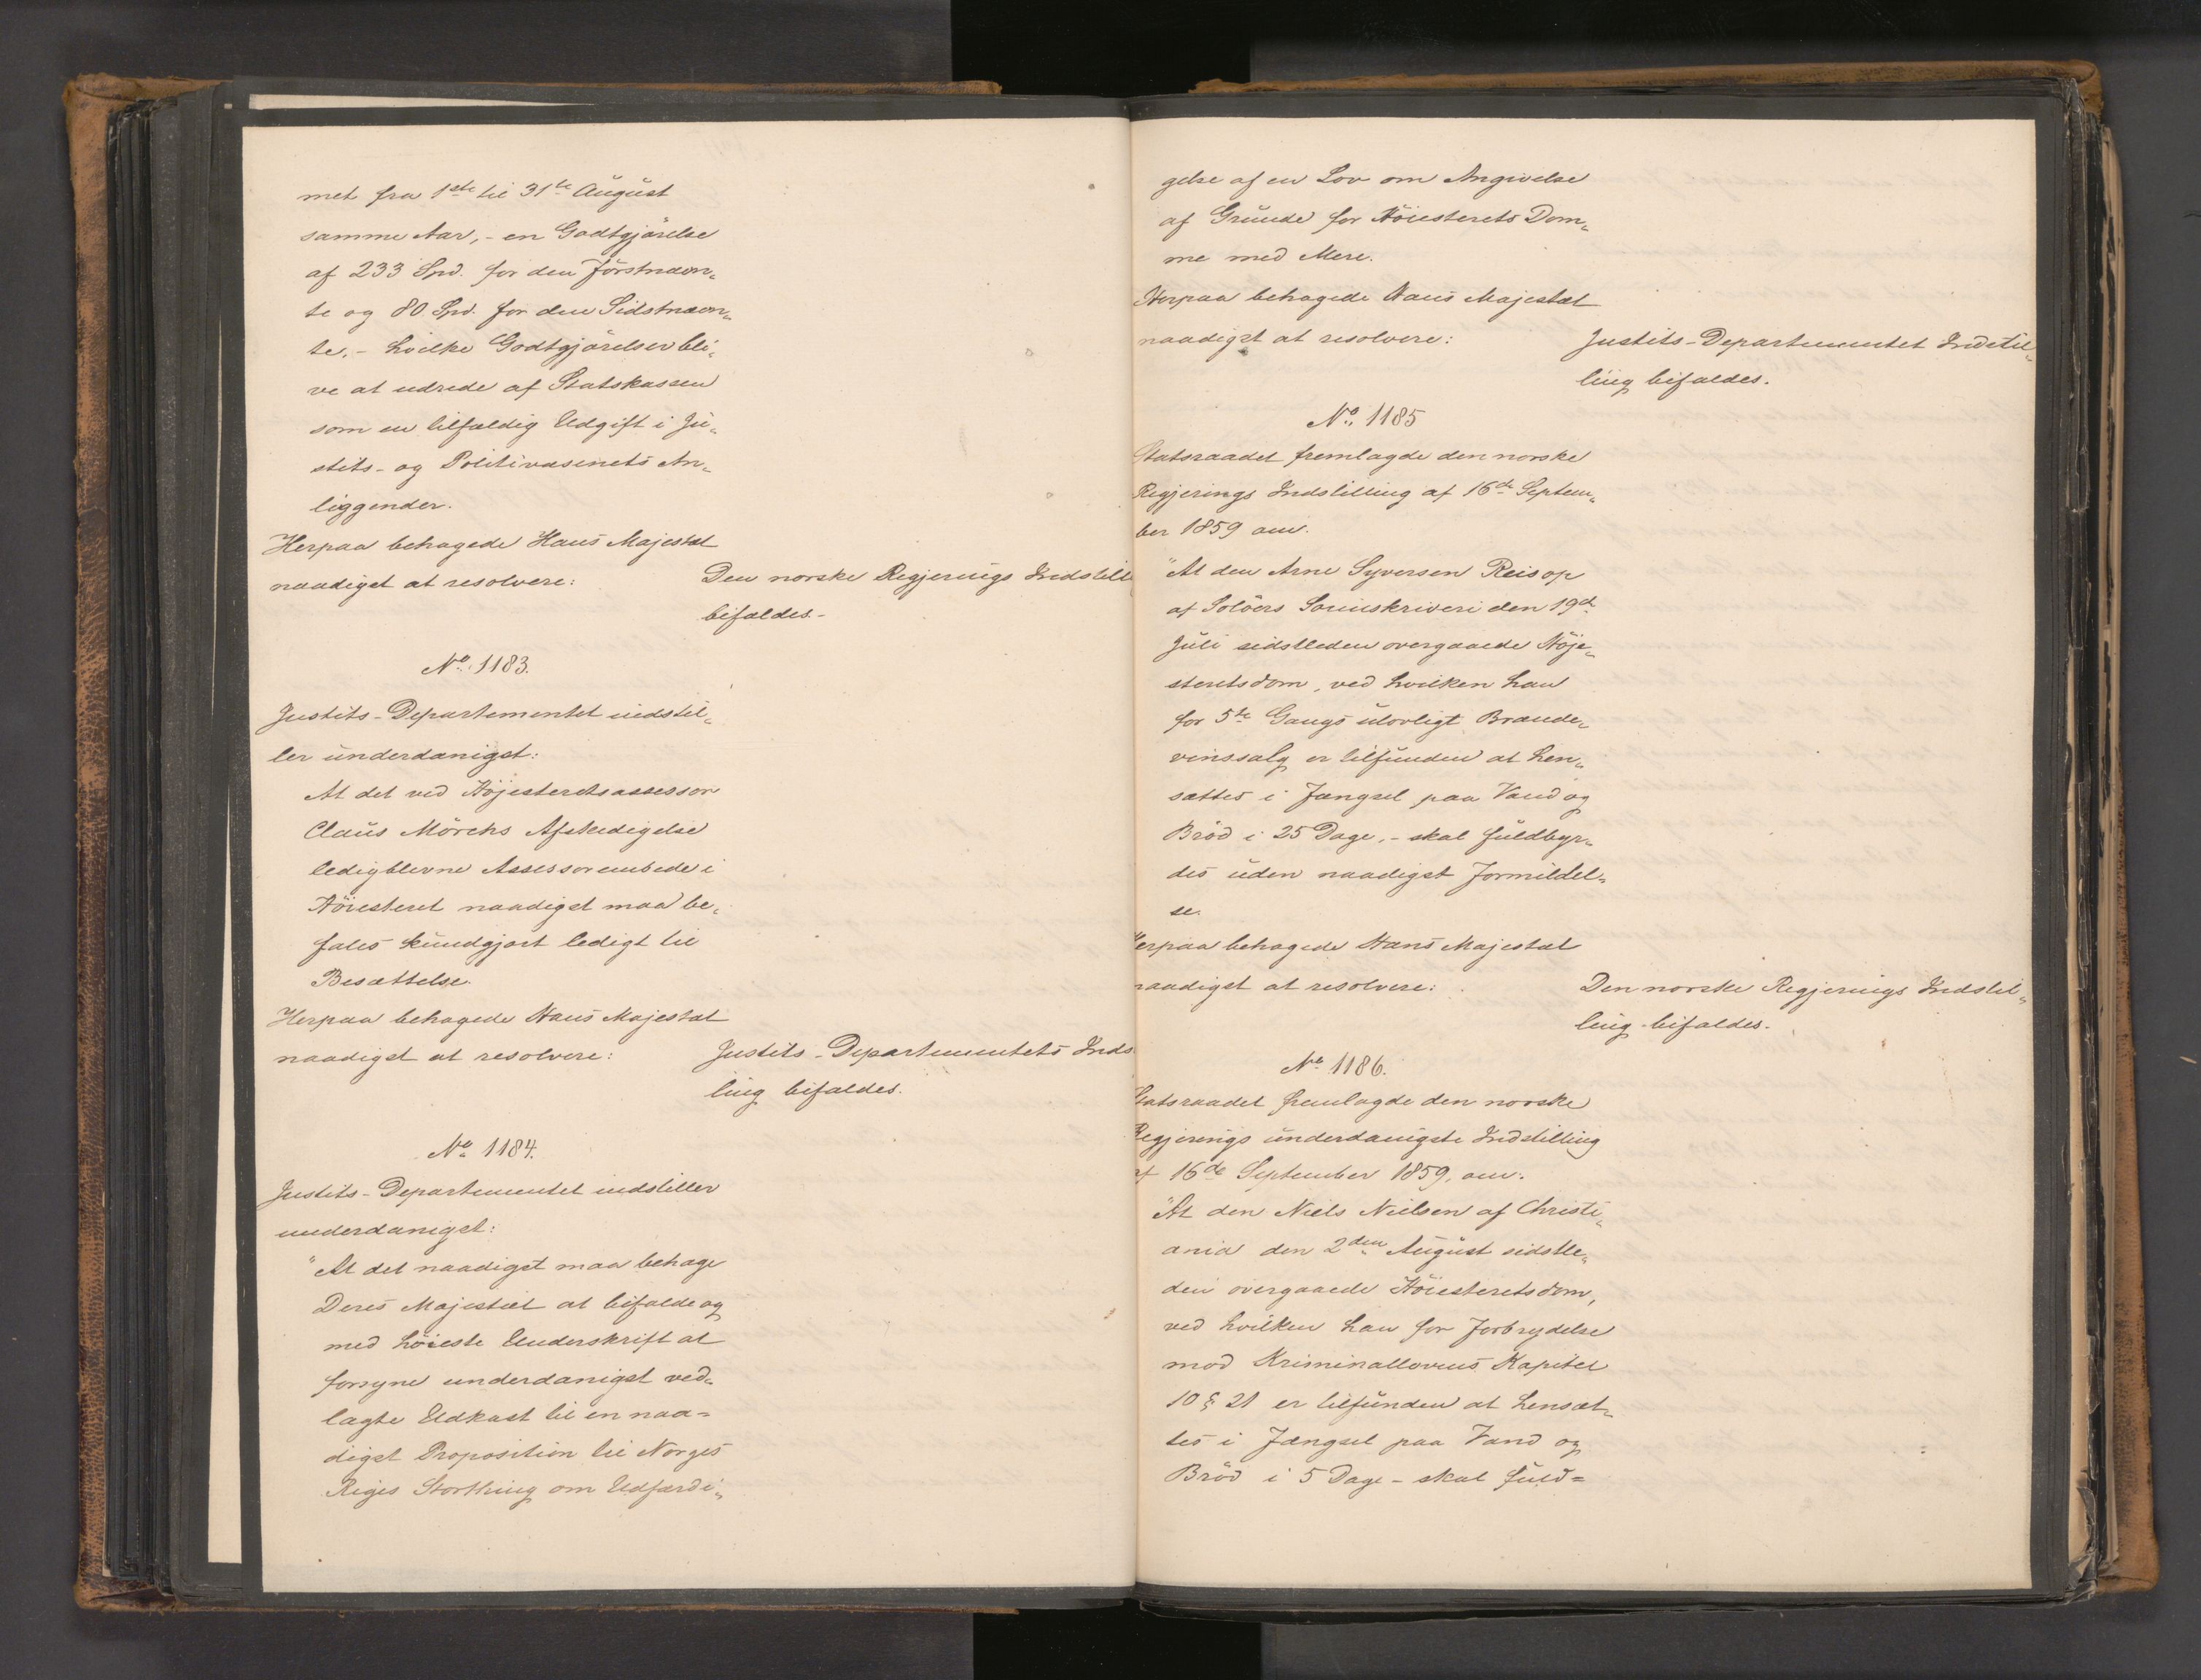 met fra 1ste til 31te August
samme Aar, - en Godtgjörelse
af 233 Spd. for den Förstnævn„
te og 80 Spd. for den Sidstnævn„
te, - hvilke Godtgjörelser bli„
ve at udrede af Statskassen
som en tilfældig Udgift i Ju„
stits- og Politivæsenets An„
liggender.
Herpaa behagede Hans Majestæt
naadigst at resolvere:
Den norske Regjerings Indstill
bifaldes. -
No 1183.
Justits-Departementet indstil„
ler underdanigst:
At det ved Höjesteretsassessor
Claus Mörchs Afskedigelse
ledigblevne Assessorembede i
Höiesteret naadigst maa be„
fales kundgjort ledigt til
Besættelse.
Herpaa behagede Hans Majestæt
naadigst at resolvere:
Justits-Departementets Inds
ling bifaldes.
No 1184.
Justits-Departementet indstiller
underdanigst:
"At det naadigst maa behage
Deres Majestæt at bifalde og
med höieste Underskrift at
forsyne underdanigst ved„
lagte Udkast til en naa=
digst Proposition til Norges
Riges Storthing om Udfærdi„
gelse af en Lov om Angivelse
af Grunde for Höiesterets Dom„
me med Mere.
Herpaa behagede Hans Majestæt
naadigst at resolvere:
Justits-Departementet Indstil„
ling bifaldes.
No. 1185
Statsraadet fremlagde den norske
Regjerings Indstilling af 16de Septem„
ber 1859 om.
"At den Arne Syversen Reisop
af Solöers Sorenskriveri den 19de
Juli sidstleden overgaaede Höje„
steretsdom, ved hvilken han
for 5te Gangs ulovligt Brænde„
vinssalg er tilfunden at hen„
sættes i Fængsel paa Vand og
Bröd i 25 Dage, - skal fuldbyr„
des uden naadigst Formildel„
se.
Herpaa behagede Hans Majestæt
naadigst at resolvere:
Den norske Regjerings Indstil„
ling bifaldes.
No 1186.
Statsraadet fremlagde den norske
Regjerings underdanigste Indstilling
af 16de September 1859, om.
"At den Niels Nielsen af Christi„
ania den 2den August sidstle„
den overgaaede Höiesteretsdom,
ved hvilken han for Forbrydelse
mod Kriminallovens Kapitel
10 § 21 er tilfunden at hensæt„
tes i Fængsel paa Vand og
Bröd i 5 Dage - skal fuld=